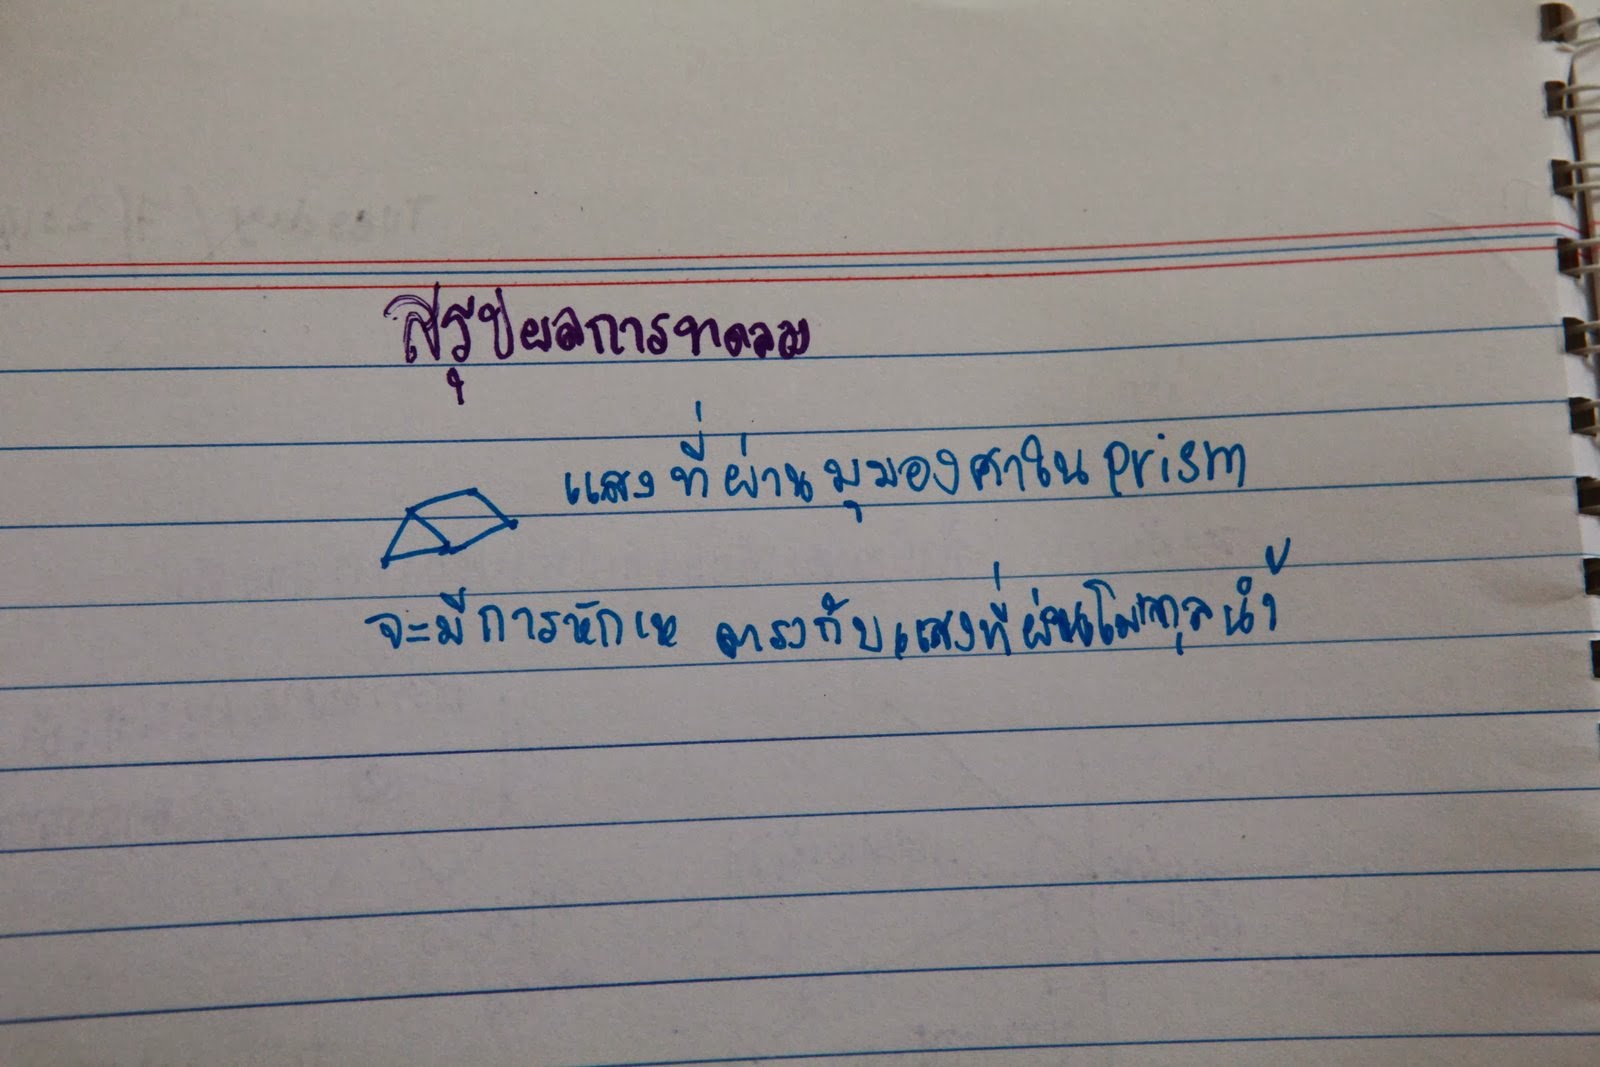 สรุปผลการทดลอง
แสงที่ผ่านมุมองศาใน prism
จะมีการหักเห ตรงกับแสงที่ผ่านโมเลกุลน้ำ